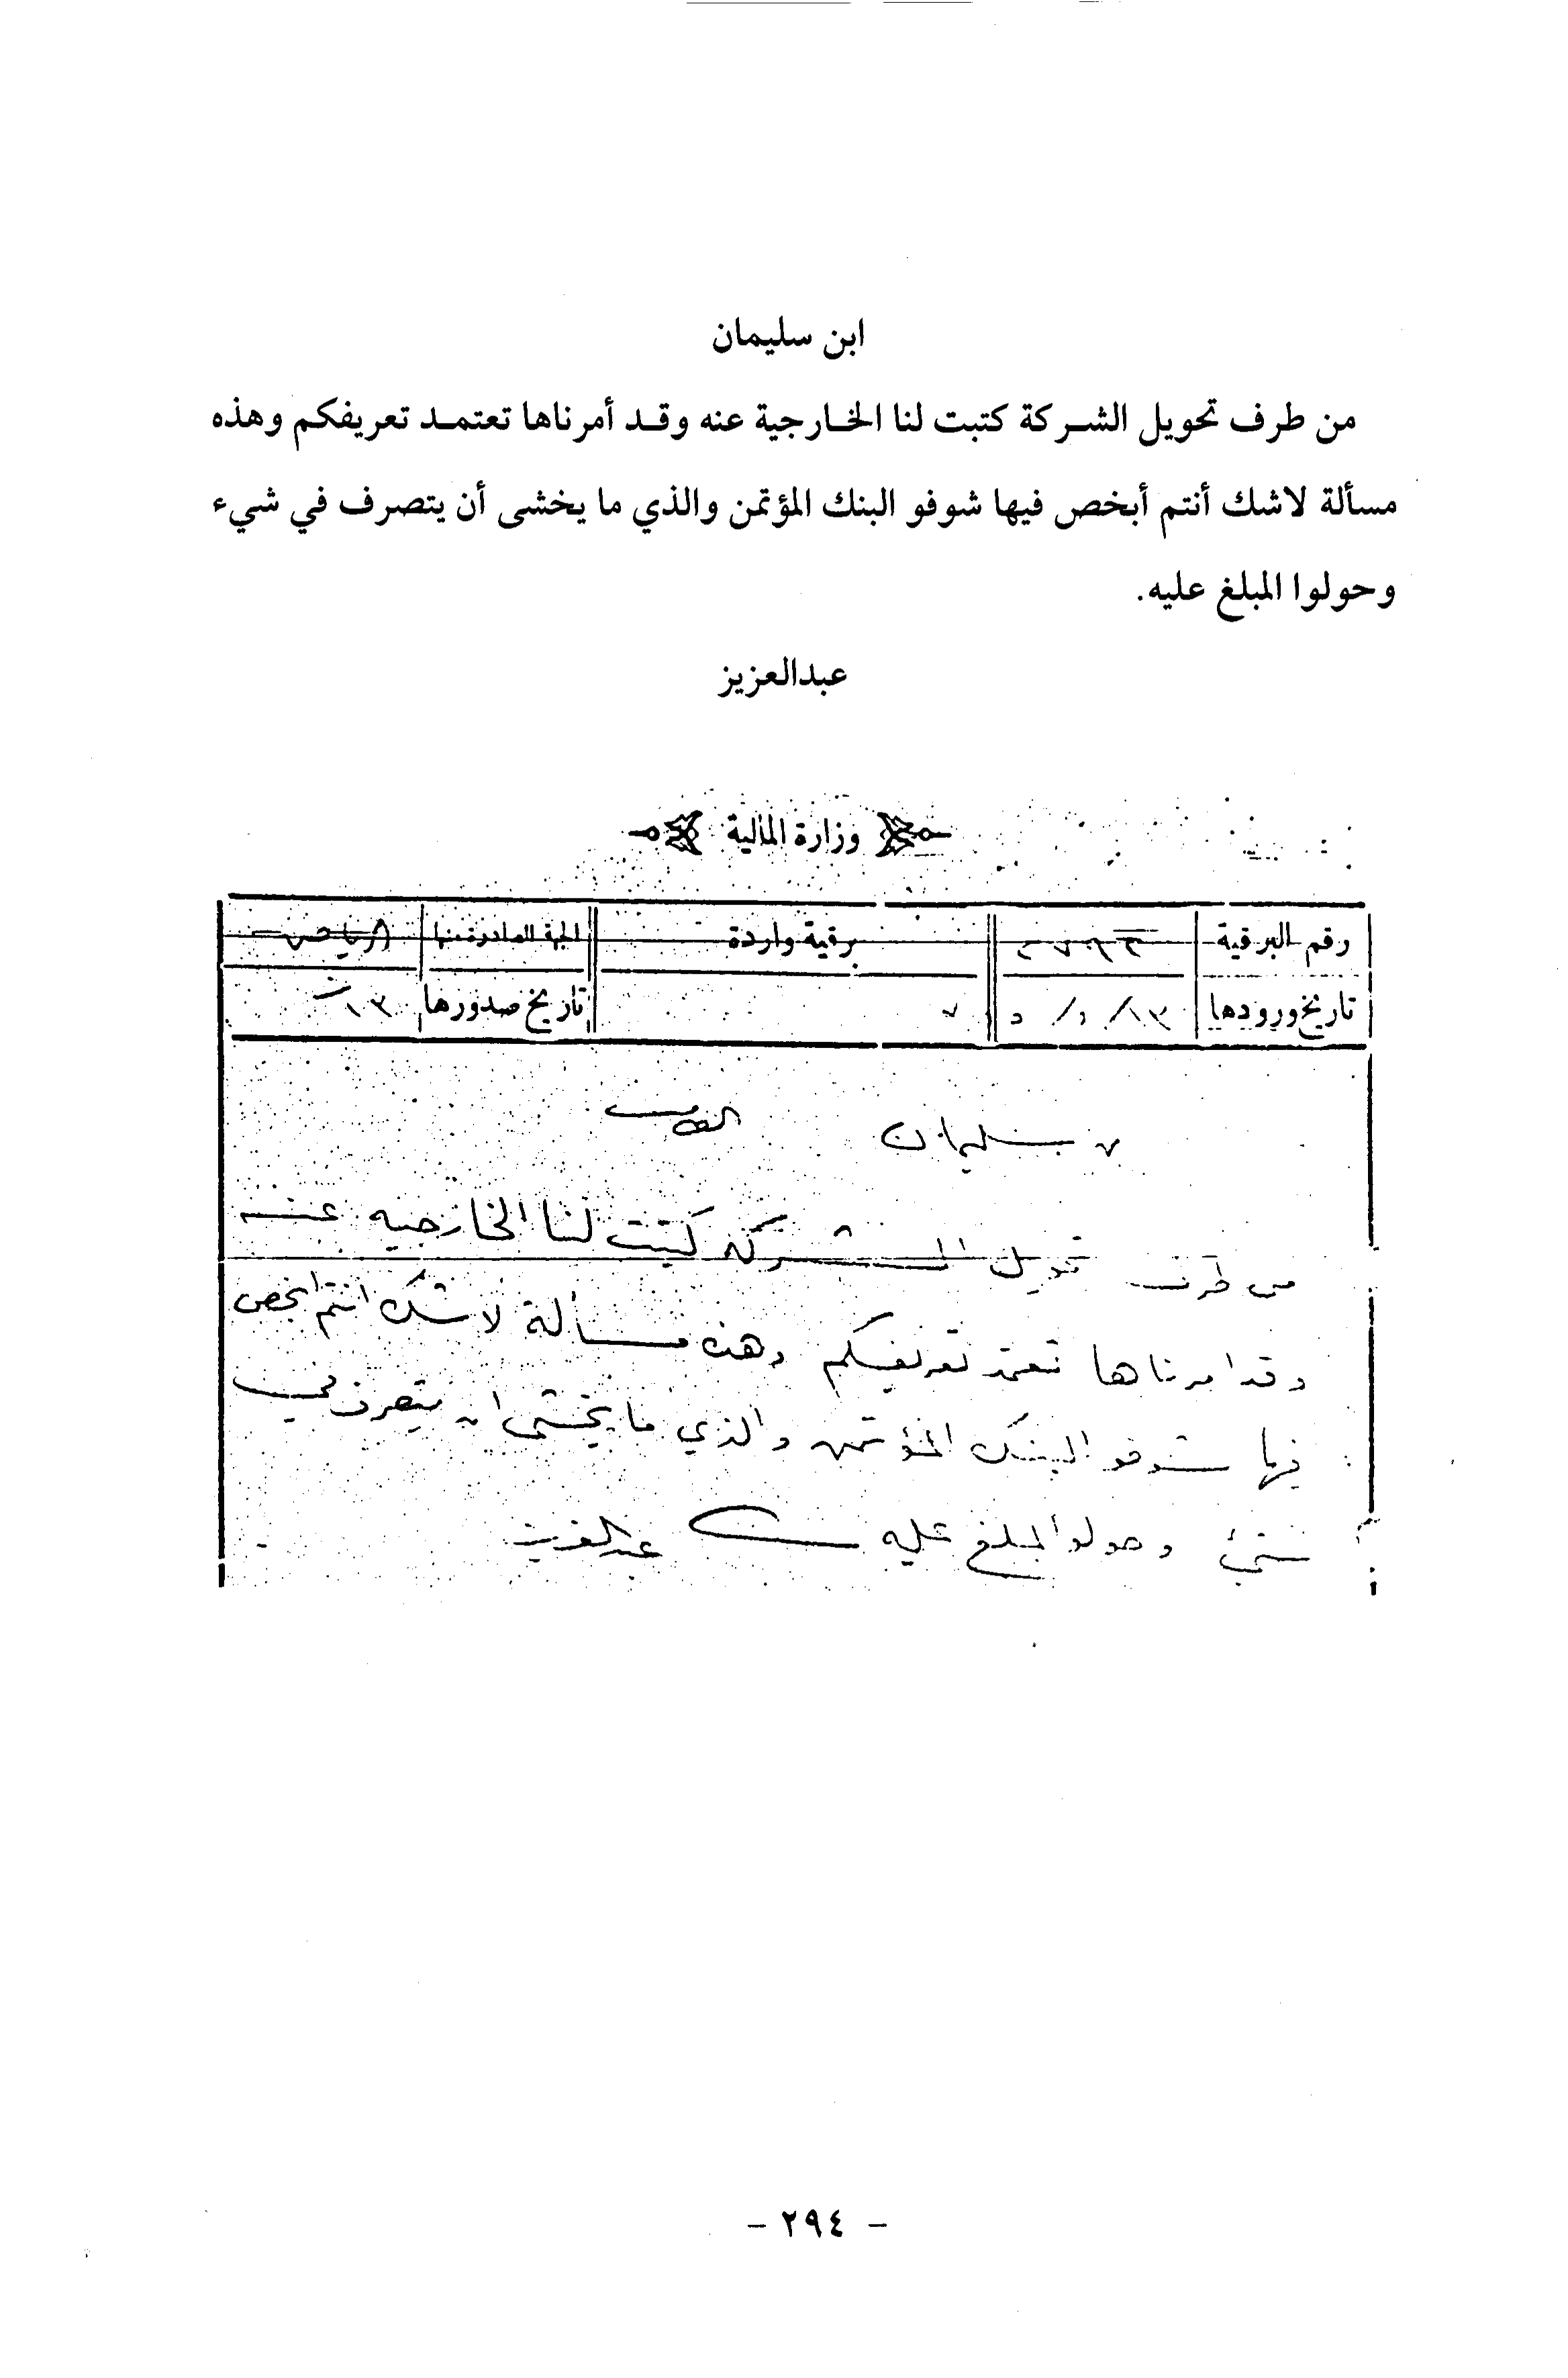 ابن سليمان
من طرف تحويل الشركة كتبت لنا الخارجية عنه وقد أمرناها تعتمد تعريفكم وهذه
مسألة لاشك أنتم أبخص فيها شوفو البنك المؤتمن والذي ما يخشى أن يتصرف في شيء
وحولوا المبلغ عليه.
عبدالعزيز
وزارة المالية
رقم البرقية برقية واردة الجهة الصادرة منها الرياض
تاريخ ورودها تاريخ صدورها ١٣
بن سليمان
من طرف تحويل الشركه كتبت لنا الخارجيه عنه
وقد امرناها تعتمد تعريفكم وهذه مسألة لاشك انتم ابخص
فيها شوفو البنك المؤتمن والذي ما يخشى ان يتصرف في
شيئ وحولوا المبلغ عليه عبدالعزيز
- ٢٩٤ -